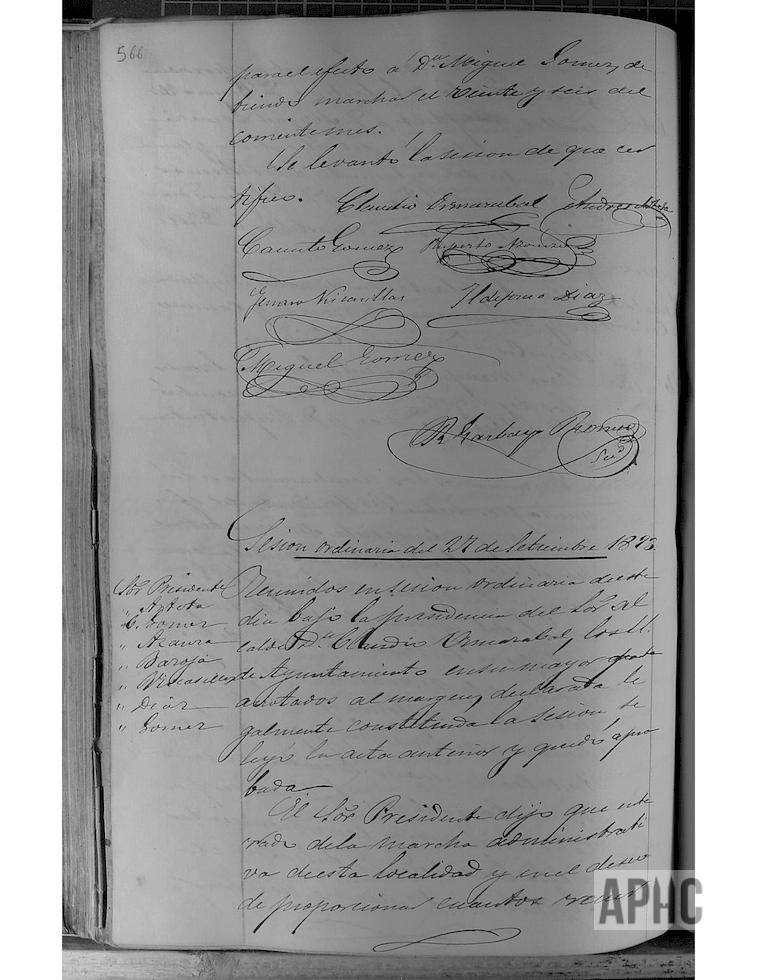 566
para el efecto a Dn Miguel Gomez, de
biendo marchar el veinte y seis del
corriente mes.
Se levantó la sesion de que cer
tifico. Claudio Armarabal
Canuto Gomez Ruperto
Genaro Vicarillas Ildefonso Diaz
Miguel Gomez
R Garbayo
Srio
Sesion ordinaria del 27 de Setiembre 1893
Sor Presidente
" 
C. Gomez
" Azcura
" Baroja
" Viscasillas
" Diaz
" Gomez
Reunidos en sesion ordinaria de este
dia bajo la presidencia del Sor Al
calde Dn Claudio Armarabal, los SS.
de Ayuntamiento en su mayor
anotados al margen, declarada le
galmente constituida la sesion se
leyó la acta anterior y quedó apro
bada
El Sor Presidente dijo que ente
rado de la marcha administrati
va de esta localidad y en el deseo
de proporcionar cuantos
APHC